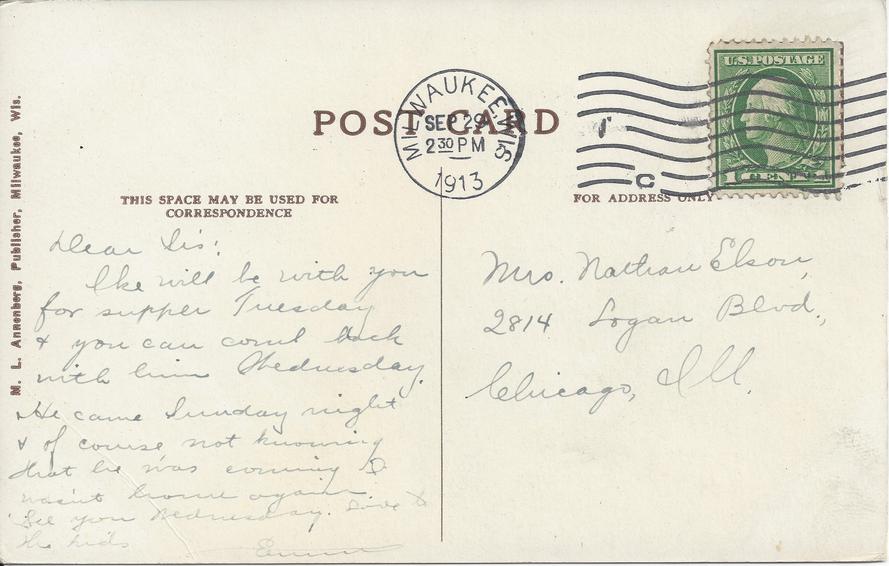 M. L. Annenberg, Publisher, Milwaukee, Wis.
POST CARD
MILWAUKEE, WIS
SEP 29
2 30 PM
1913
C
U.S. POSTAGE
1 CENT 1
THIS SPACE MAY BE USED FOR
CORRESPONDENCE
FOR ADDRESS ONLY
Dear Sis:
Ike will be with you
for supper Tuesday
& you can come back
with him Wednesday.
He came Sunday night
& of course not knowing
that he was coming I
wasn't home again
See you Wednesday. Love to
the kids
Mrs. Nathan Elson,
2814 Logan Blvd.,
Chicago, Ill.